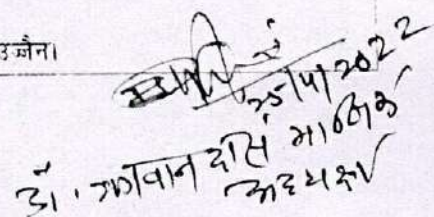 उज्जैन।
25/4/2022
डॉ. भगवान दास
अध्यक्ष